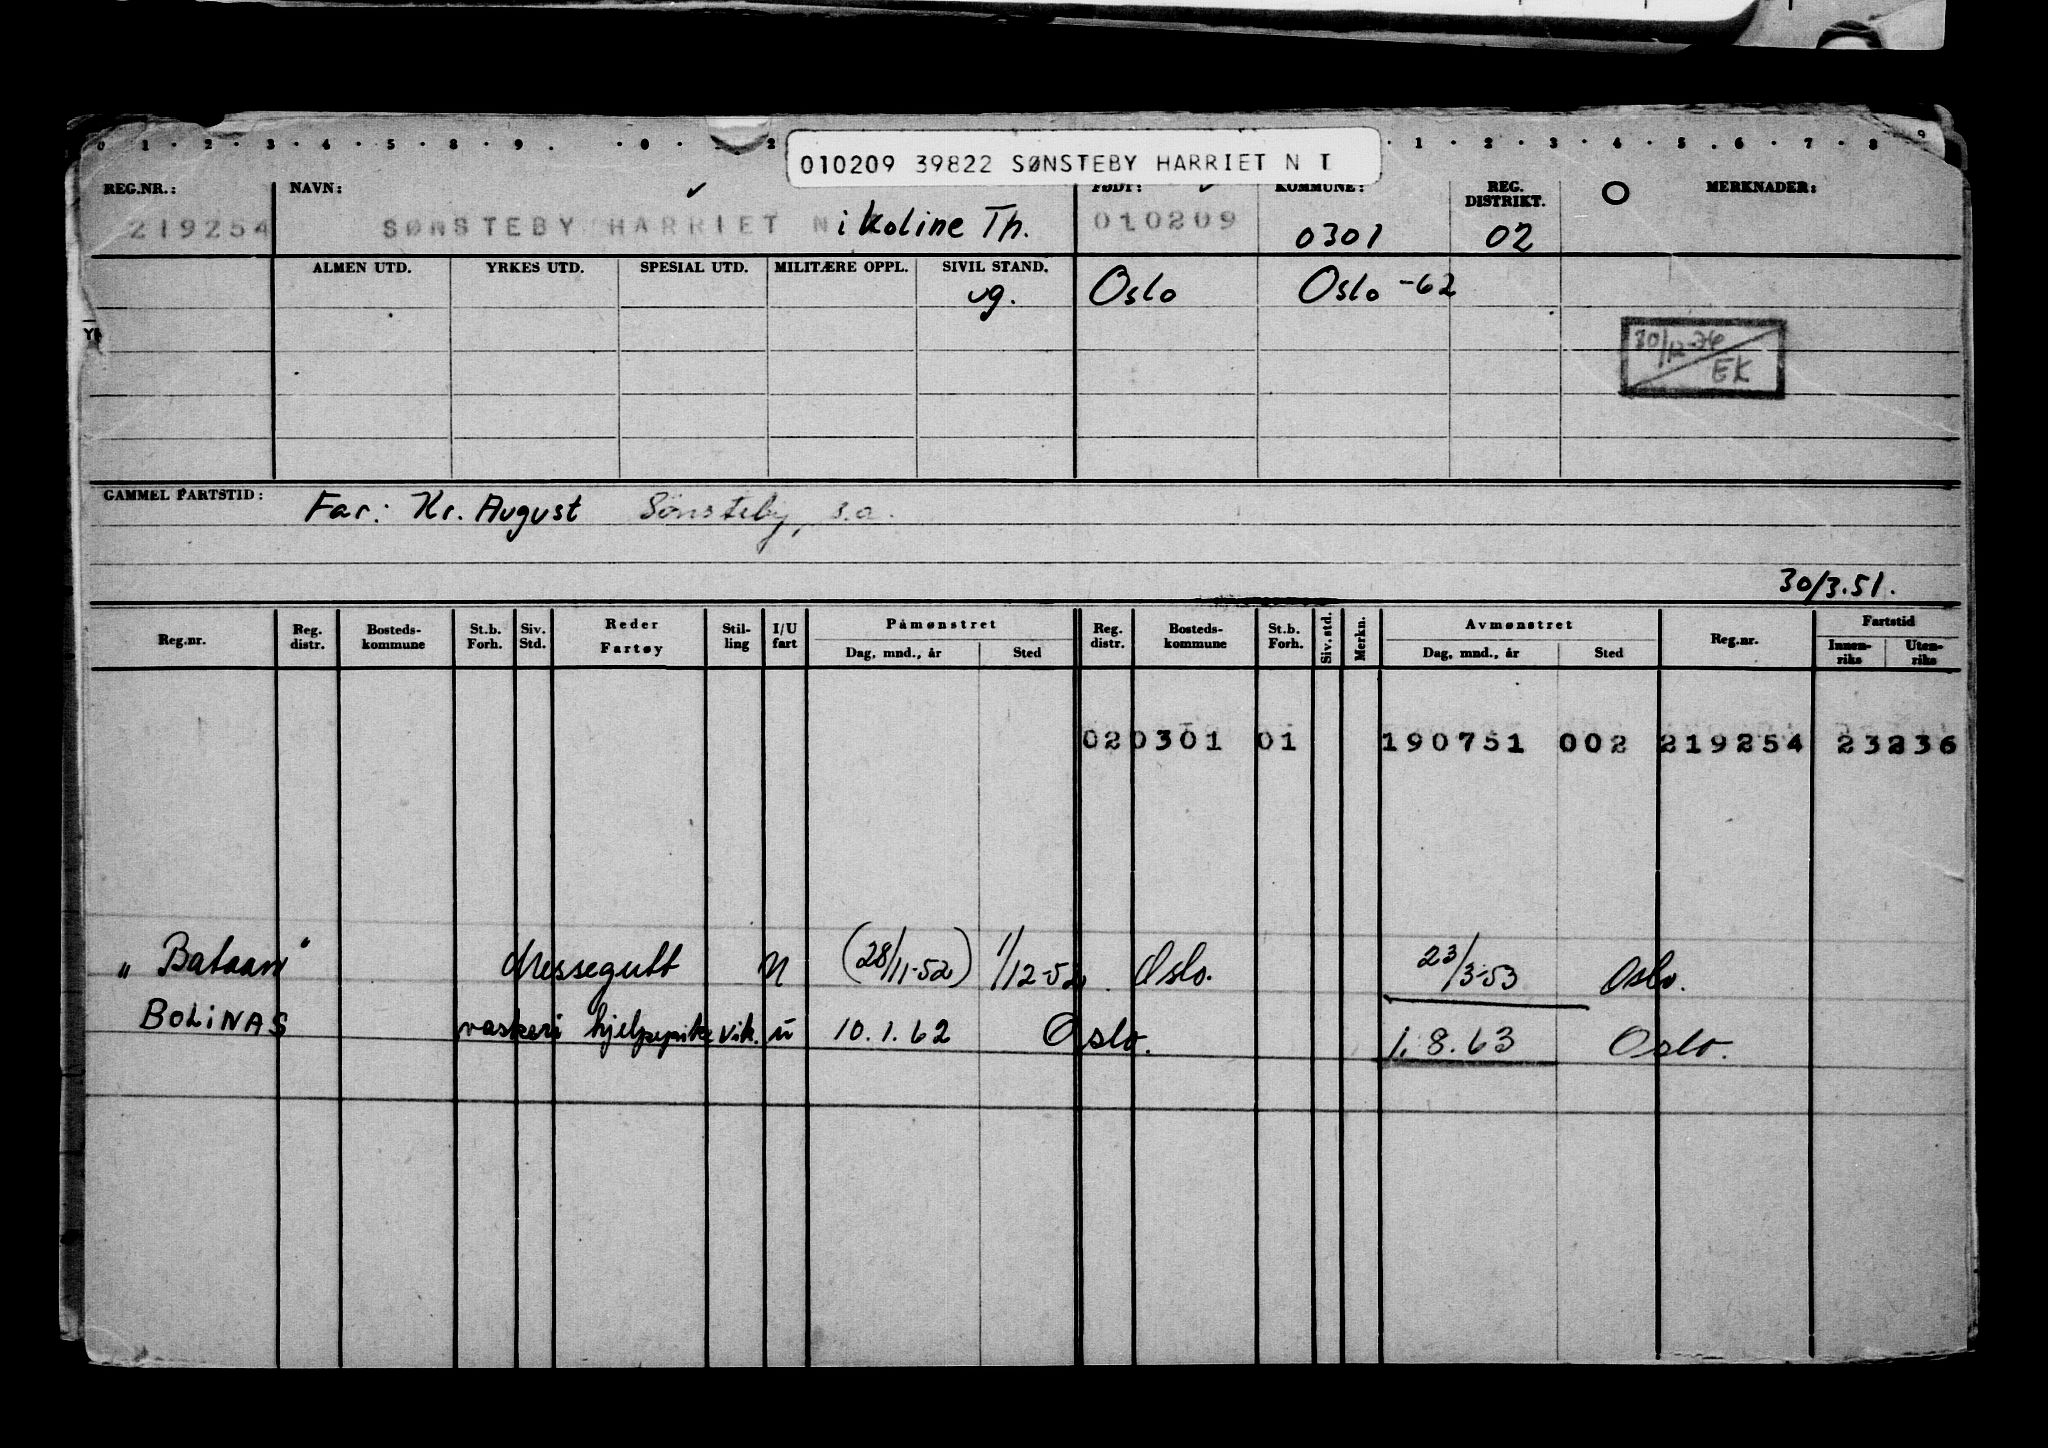 0 1 · 2 · 3 · 4 · 5 · 8 · 9 . · 0 · 1 · 2 · 1 · 2 · 3 · 4 · 5 . 6 · 7 · 8 9
010209 39822 SØNSTEBY HARRIET N T
REG.NR.: NAVN: ✓ FØDT: KOMMUNE: REG. DISTRIKT. O MERKNADER:
219254 SØNSTEBY HARRIET Nikoline Th. 010209 0301 02
ALMEN UTD. YRKES UTD. SPESIAL UTD. MILITÆRE OPPL. SIVIL STAND.
ug. Oslo Oslo -62
30/12-76
EK
GAMMEL FARTSTID: Far: Kr. August Sønsteby, s.a.
30/3.51.
Reg.nr. Reg. distr. Bosteds-kommune St.b. Forh. Siv. Std. Reder Fartøy Stil-ling I/U fart Påmønstret Dag, mnd., år Sted Reg. distr. Bosteds-kommune St.b. Forh. Siv. std. Merkn. Avmønstret Dag, mnd., år Sted Reg.nr. Fartstid Innen-riks Uten-riks
02 0301 01 190751 002 219254 23236
„Bataan" Messegutt U (28/11-52) 1/12-52 Oslo. 23/3-53 Oslo.
BOLINAS vaskeri hjelpepike vik. u 10.1.62 Oslo. 1.8.63 Oslo.